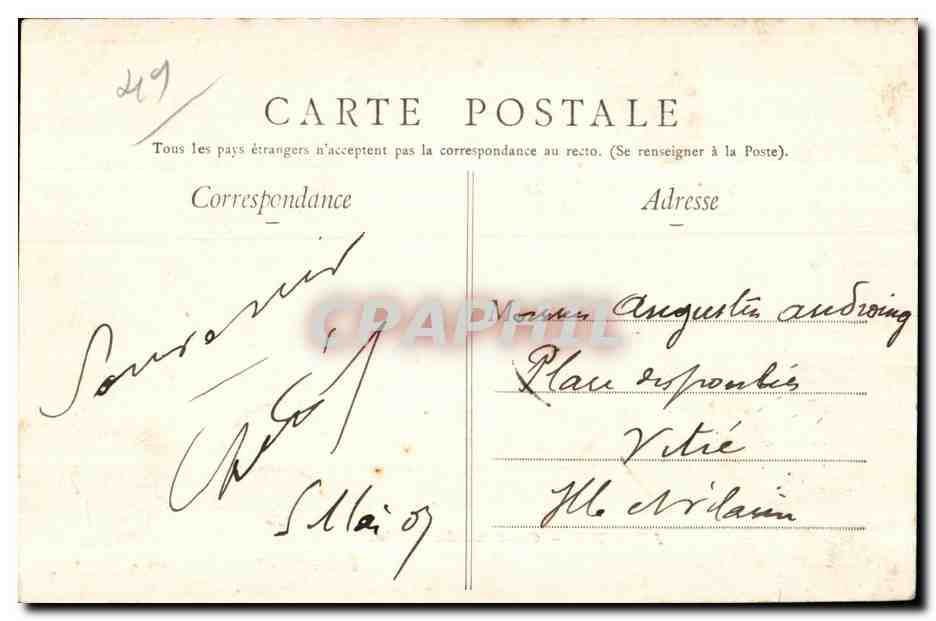 49
CARTE POSTALE
Tous les pays étrangers n'acceptent pas la correspondance au recto. (Se renseigner à la Poste).
Correspondance
Adresse
Souvenir
5 Mai 05
Augustin
CPAPHIL
Place
Vitré
Ille et Vilaine